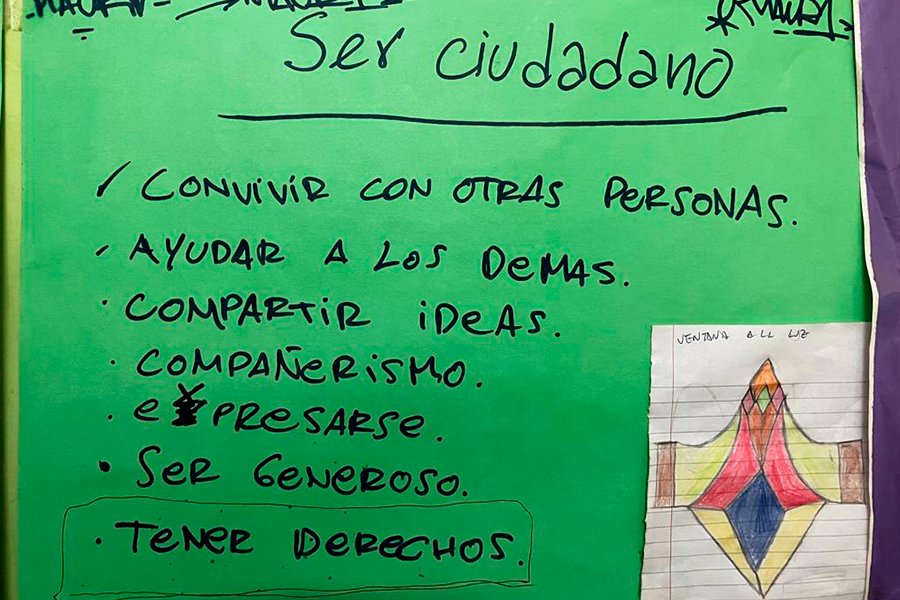 Ser ciudadano
✓ CONVIVIR CON OTRAS PERSONAS.
✓ AYUDAR A LOS DEMAS.
· COMPARTIR IDEAS.
· COMPAÑERISMO.
· EXPRESARSE.
· SER GENEROSO.
· TENER DERECHOS.
VENTANA